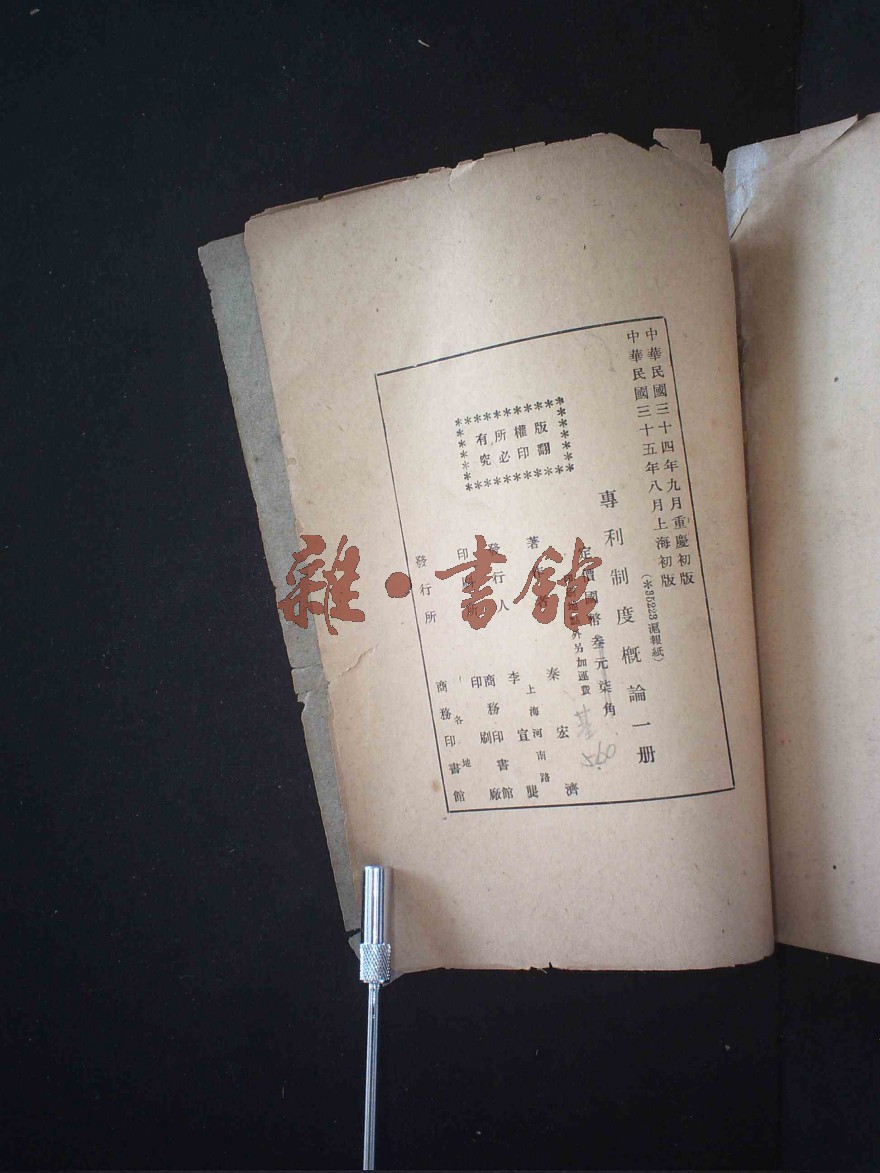 中華民國三十四年九月重慶初版
中華民國三十五年八月上海初版
(✱35223滬報紙)
專利制度概論一册
定價國幣叁元柒角
印刷地點外另加運費
版權所有
翻印必究
著作者
秦宏濟
發行人
李宣龔
上海河南路
印刷所
商務印書館
印刷廠
發行所
各地
商務印書館
雜·書館
560